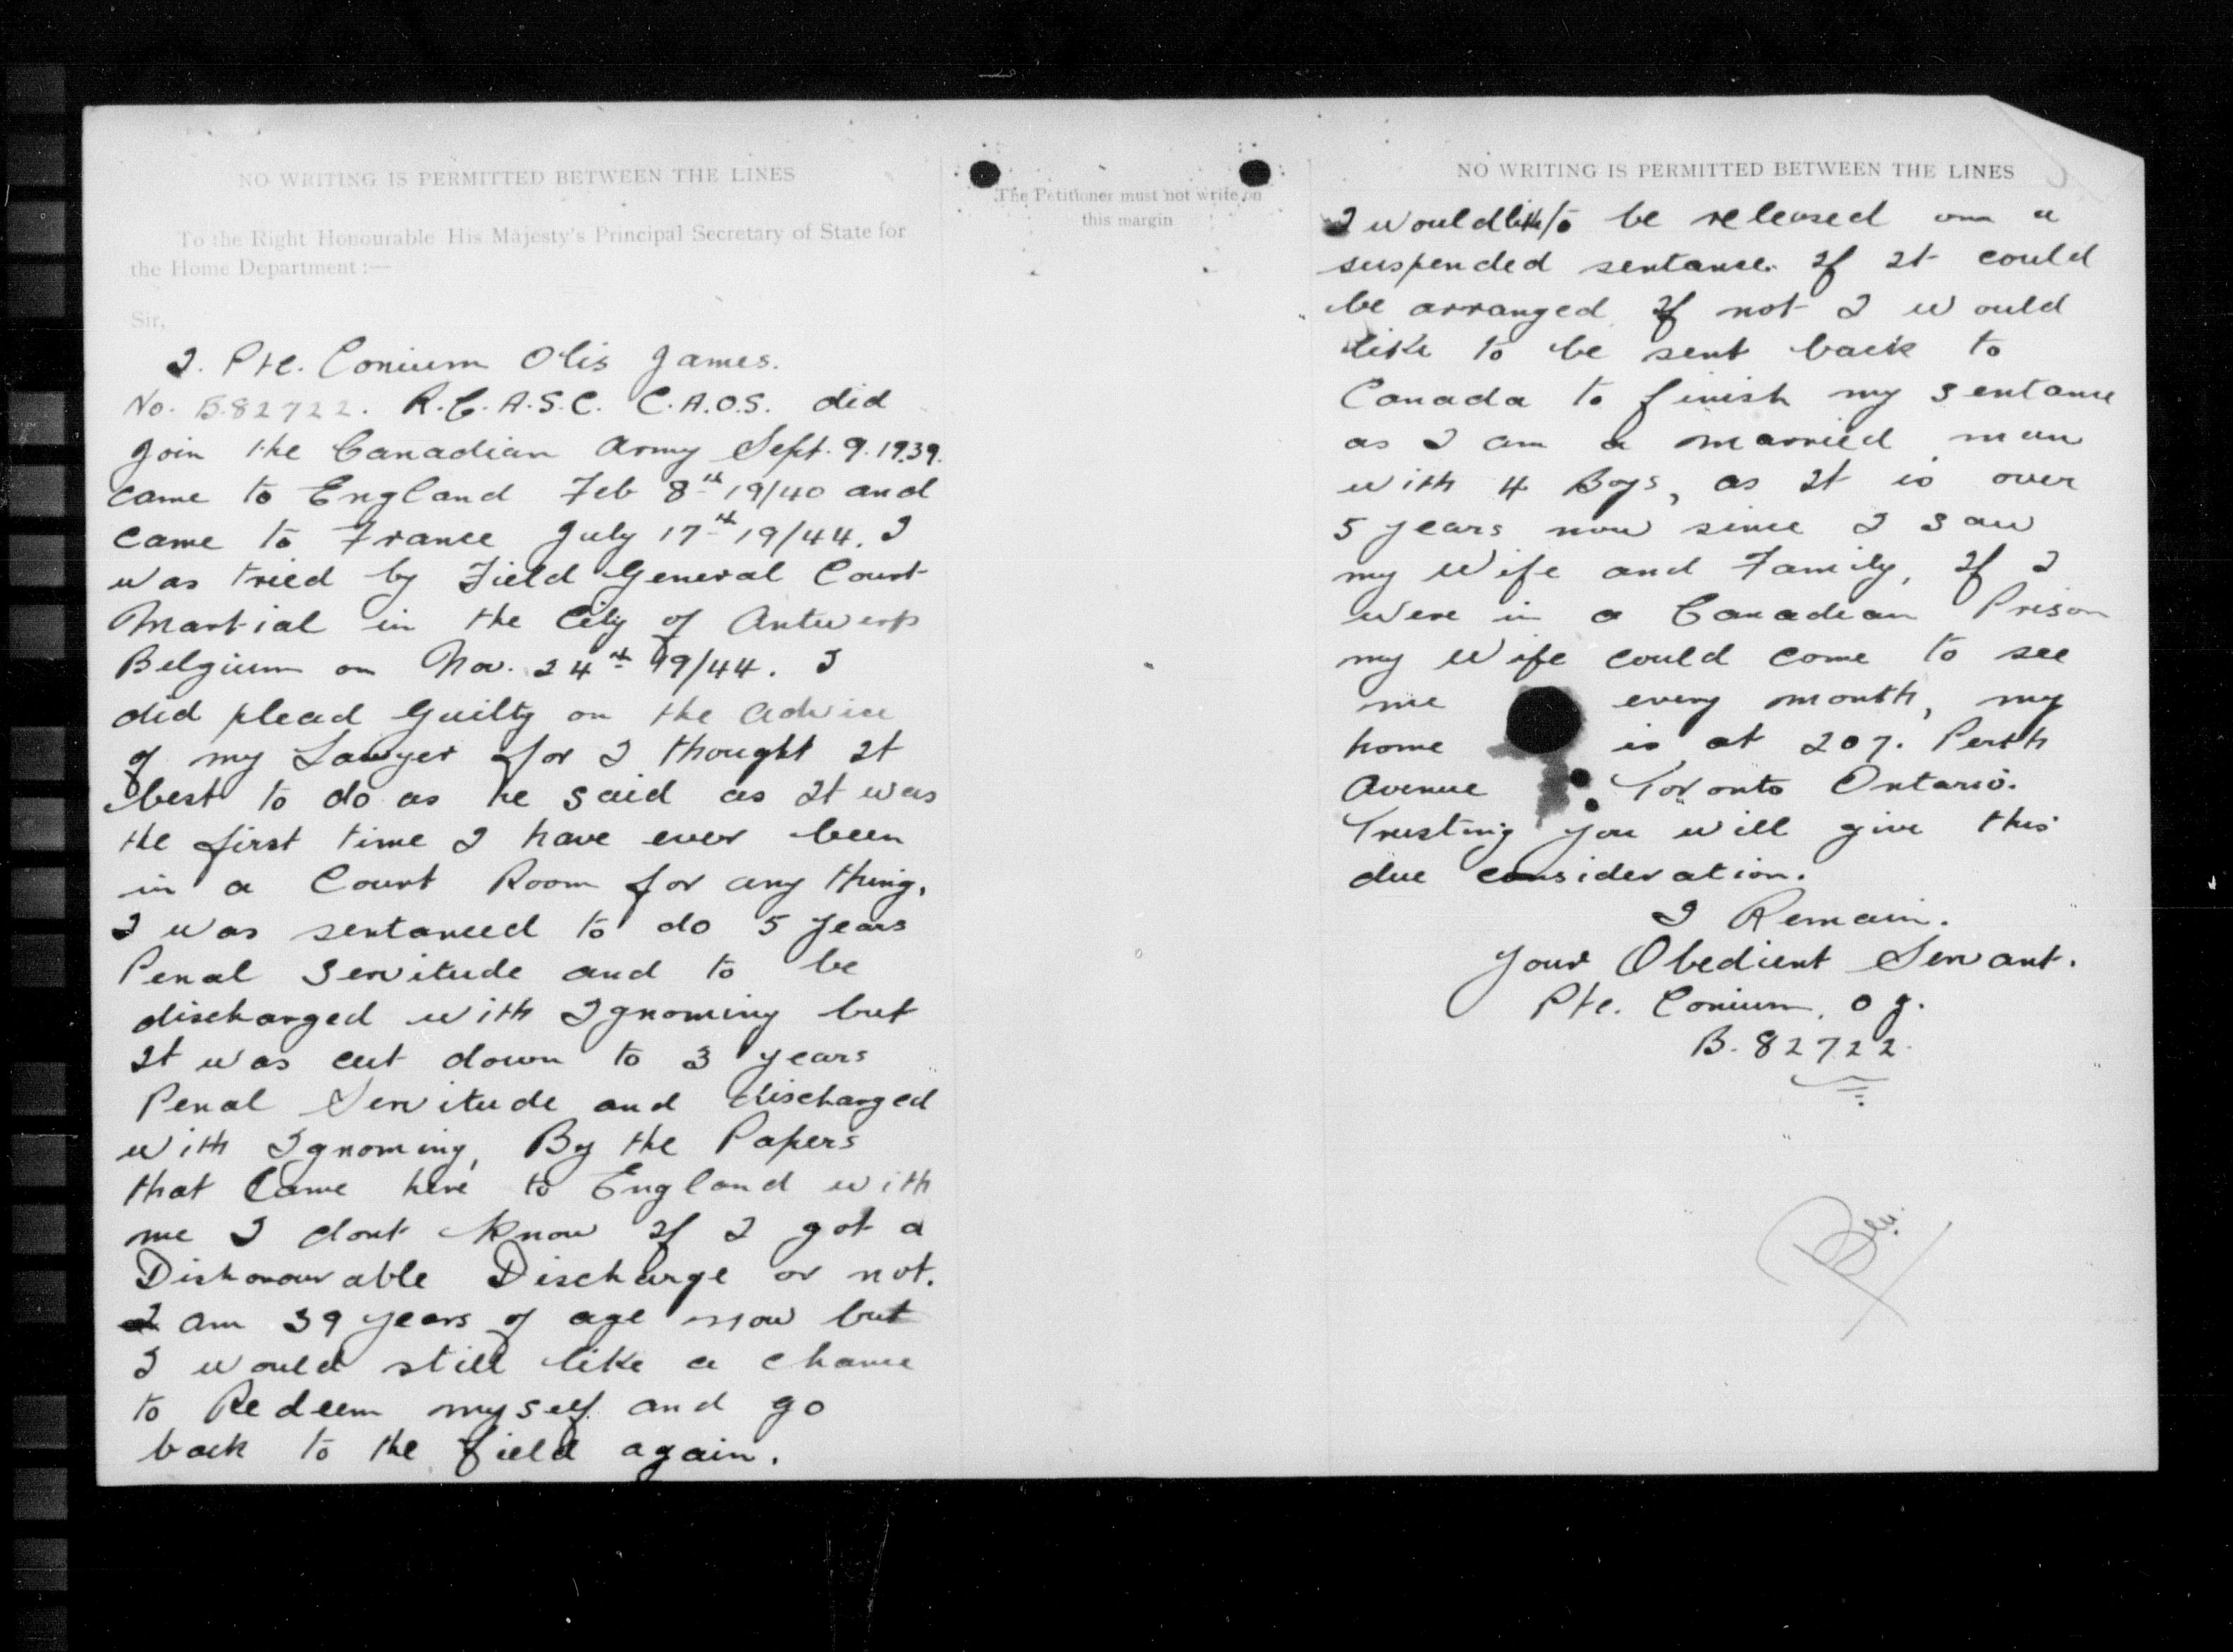 NO WRITING IS PERMITTED BETWEEN THE LINES
To the Right Honourable His Majesty's Principal Secretary of State for
the Home Department :—
Sir,
I. Pte. Conium Otis James.
No. B.82722. R.C.A.S.C. C.A.O.S. did
join the Canadian Army Sept. 9. 1939.
came to England Feb 8th 19/40 and
came to France July 17th 19/44. I
was tried by Field General Court
Martial in the City of Antwerp
Belgium on Nov. 24th 19/44. I
did plead Guilty on the advice
of my Lawyer for I thought It
best to do as he said as It was
the first time I have ever been
in a Court Room for any thing.
I was sentanced to do 5 years
Penal Servitude and to be
discharged with Ignominy but
It was cut down to 3 years
Penal Servitude and discharged
with Ignominy, By the Papers
that Came here to England with
me I dont know If I got a
Dishonourable Discharge or not.
I am 39 years of age now but
I would still like a chance
to Redeem myself and go
back to the field again.
The Petitioner must not write on
this margin
NO WRITING IS PERMITTED BETWEEN THE LINES
I would like to be released on a
suspended sentance. If It could
be arranged If not I would
like to be sent back to
Canada to finish my sentance
as I am a married man
with 4 Boys, as It is over
5 years now since I saw
my Wife and Family, If I
were in a Canadian Prison
my Wife could come to see
me every month, my
home is at 207. Perth
Avenue Toronto Ontario.
Trusting you will give this
due consideration.
I Remain.
Your Obedient Servant.
Pte. Conium. O J.
B. 82722.